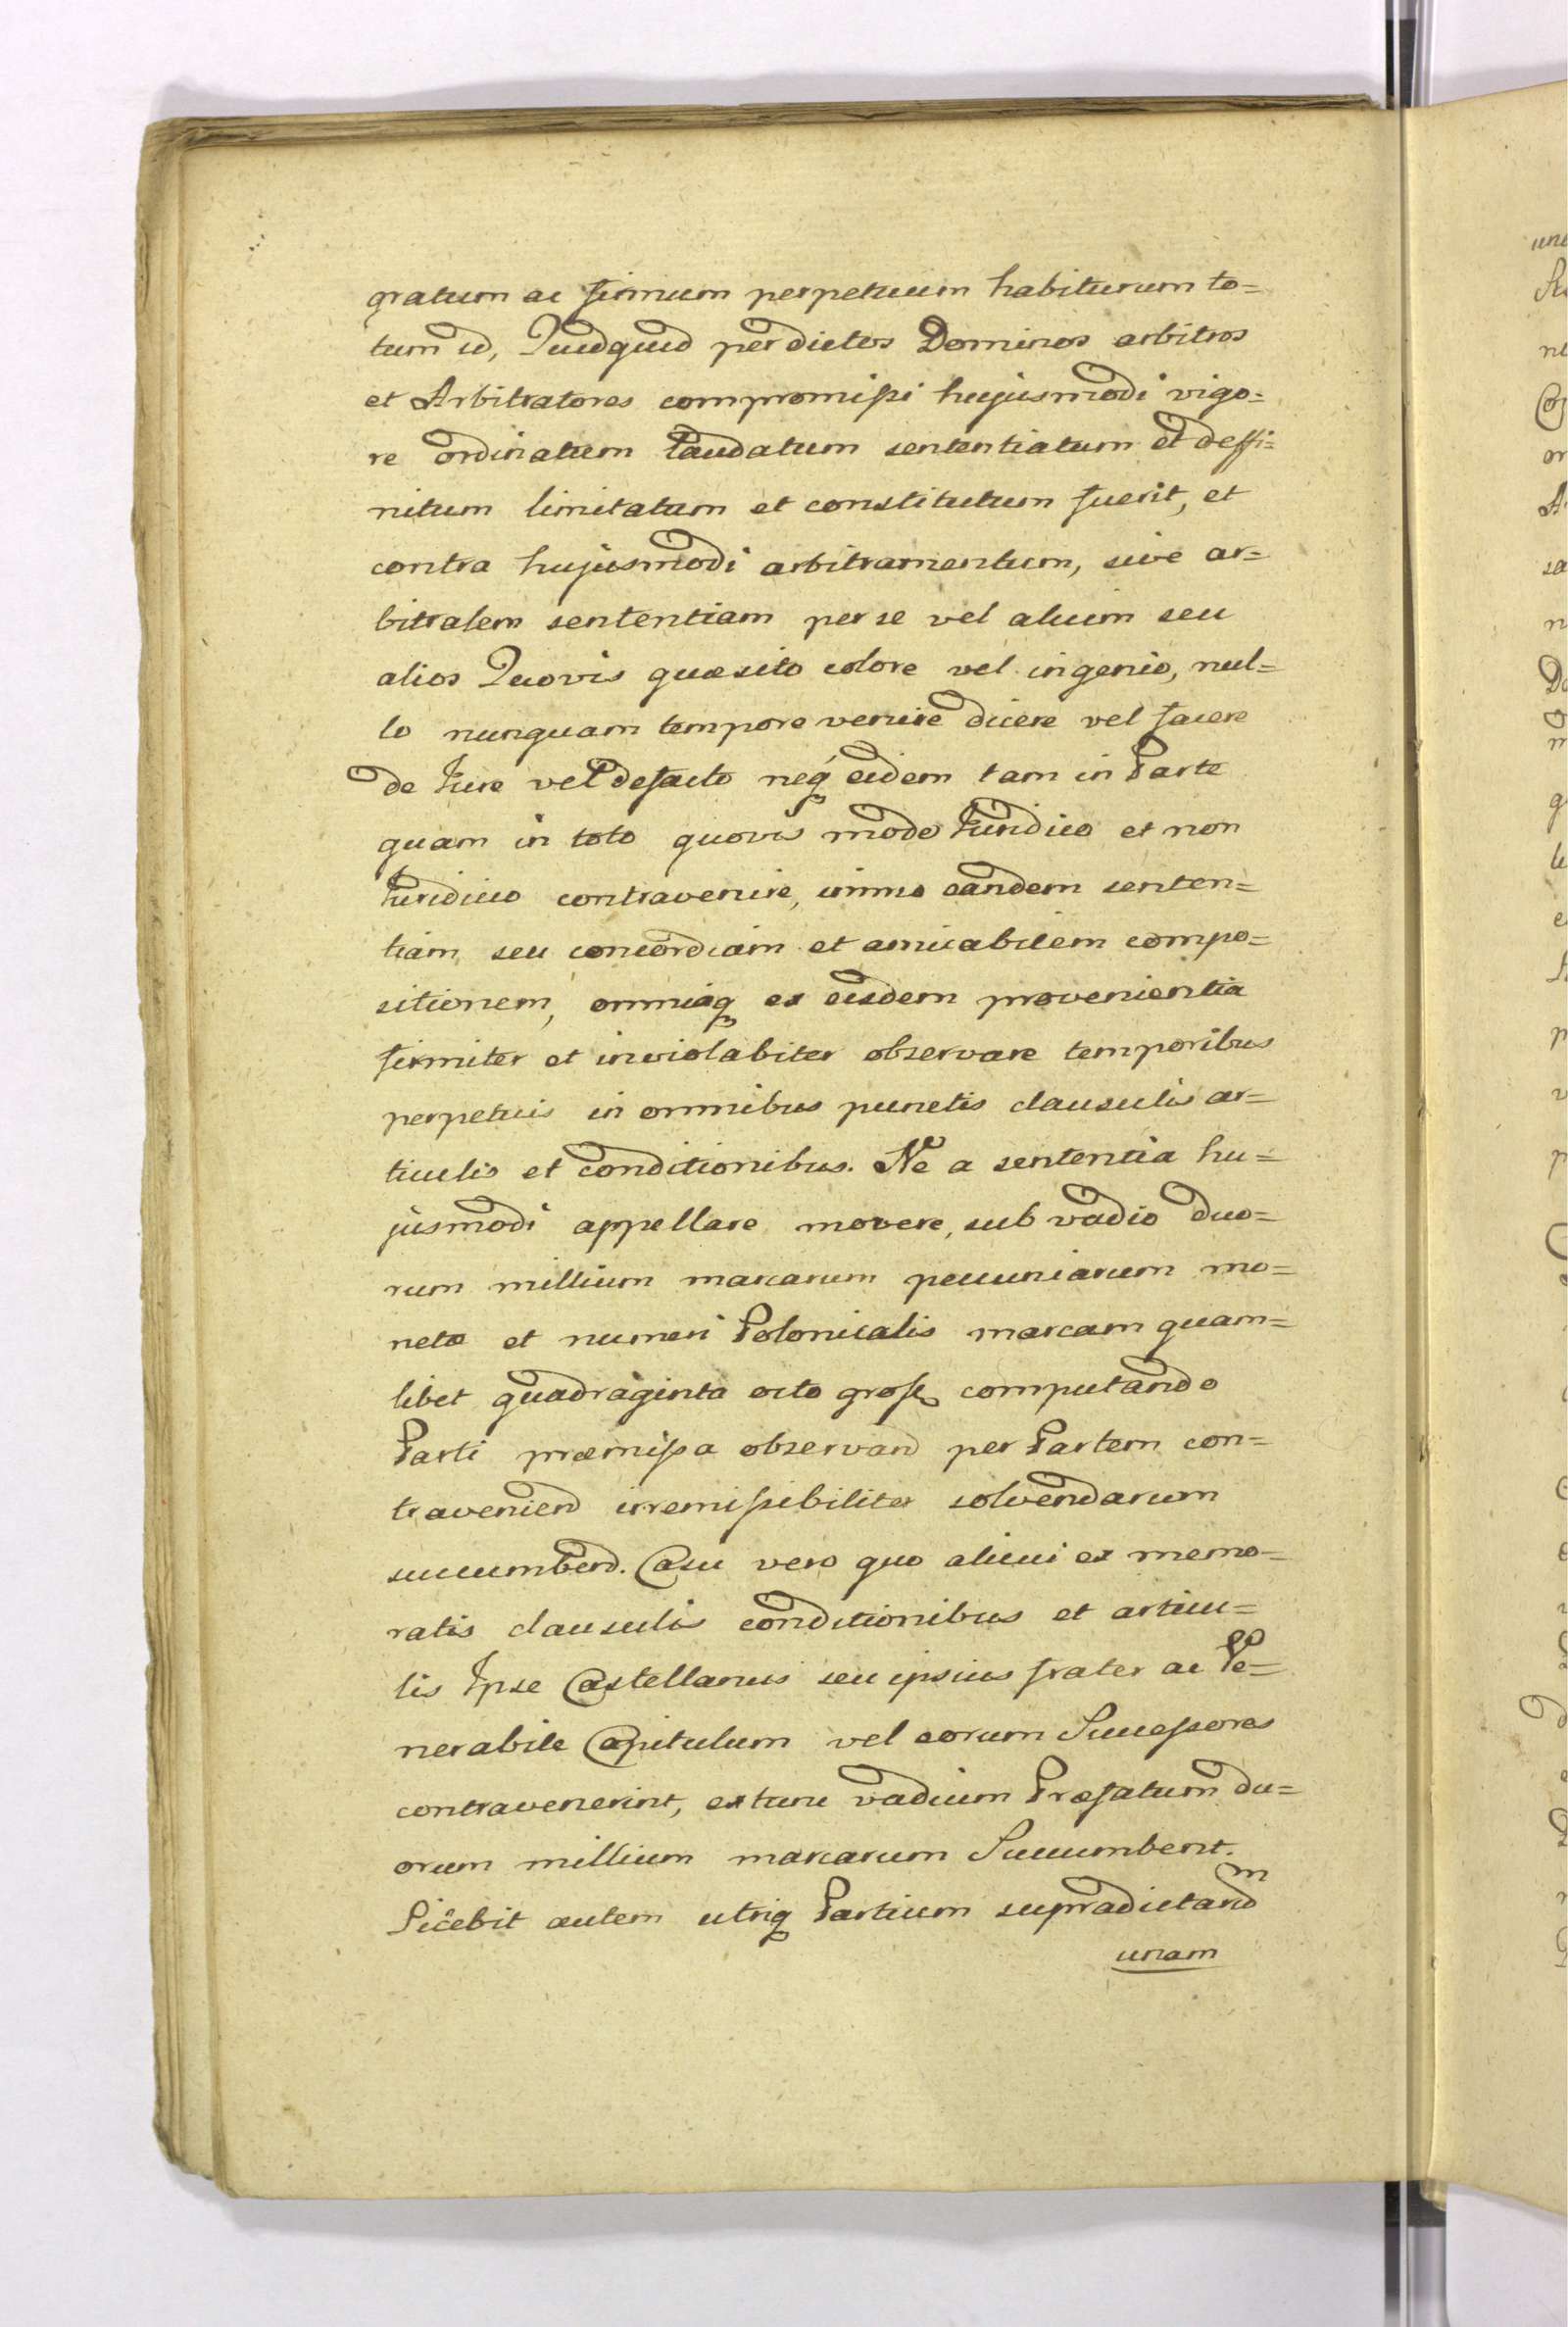 gratum ac firmum perpetuum habiturum to=
tum id, Quidquid per dictos Dominos arbitros
et Arbitratores compromissi hujusmodi vigo=
re ordinatum laudatum sententiatum et deffi=
nitum limitatum et constitutum fuerit, et
contra hujusmodi arbitramentum, sive ar=
bitralem sententiam per se vel alium seu
alios Quovis quæsito colore vel ingenio, nul=
lo nunquam tempore venire dicere vel facere
de Iure vel de facto neq₃ eidem tam in Parte
quam in toto quovis modo Iuridico et non
Iuridico contravenire, immo eandem senten=
tiam seu concordiam et amicabilem compo=
sitionem, omniaq₃ ex eisdem provenientia
firmiter et inviolabiter observare temporibus
perpetuis in omnibus punctis clausulis ar=
ticulis et conditionibus. Ne a sententia hu=
jusmodi appellare movere, sub vadio duo=
rum millium marcarum pecuniarum mo=
netæ et numeri Polonicalis marcam quam=
libet quadraginta octo gross computando
Parti præmissa observand per Partem con=
traveniend irremissibiliter solvendarum
succumbend. Casu vero quo alicui ex memo=
ratis clausulis conditionibus et articu=
lis Ipse Castellanus seu ipsius frater ac Ve=
nerabile Capitulum vel eorum Successores
contravenerint, extunc vadium Præfatum du=
orum millium marcarum Succumbent.
Licebit autem utriq₃ Partium supradictarum
unam
un
ne
or
sa
n
Do
m
q
p
v
p